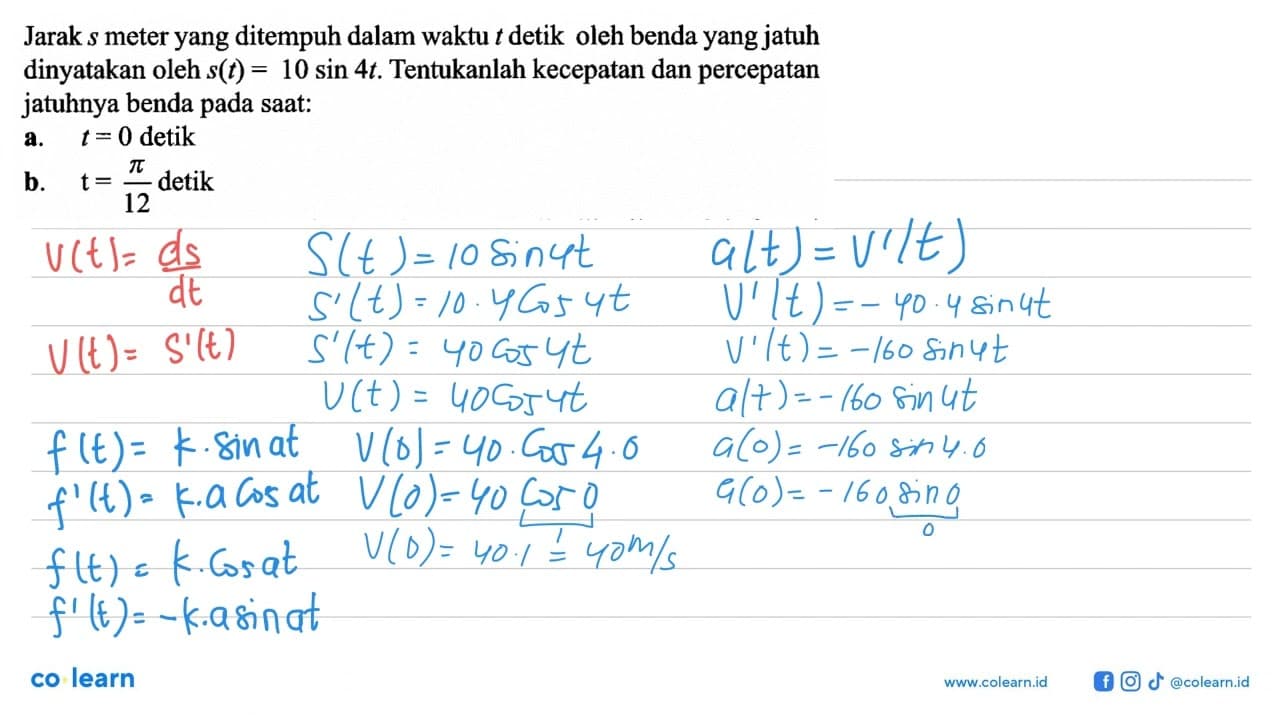 Jarak s meter yang ditempuh dalam waktu t detik oleh benda yang jatuh
dinyatakan oleh s(t) = 10 sin 4t. Tentukanlah kecepatan dan percepatan
jatuhnya benda pada saat:
a. t = 0 detik
b. t = π/12 detik
V(t) = ds/dt
V(t) = S'(t)
f(t) = k. sin at
f'(t) = k.a Cos at
f(t) = k. Cos at
f'(t) = -k.a sin at
S(t) = 10 sin 4t
S'(t) = 10 . 4 Cos 4t
S'(t) = 40 Cos 4t
V(t) = 40 Cos 4t
V(0) = 40 . Cos 4.0
V(0) = 40 Cos 0
1
V(0) = 40.1 = 40 m/s
a(t) = V'(t)
V'(t) = - 40 . 4 sin 4t
V'(t) = -160 sin 4t
a(t) = -160 sin 4t
a(0) = -160 sin 4.0
a(0) = -160 sin 0
0
co learn
www.colearn.id
@colearn.id